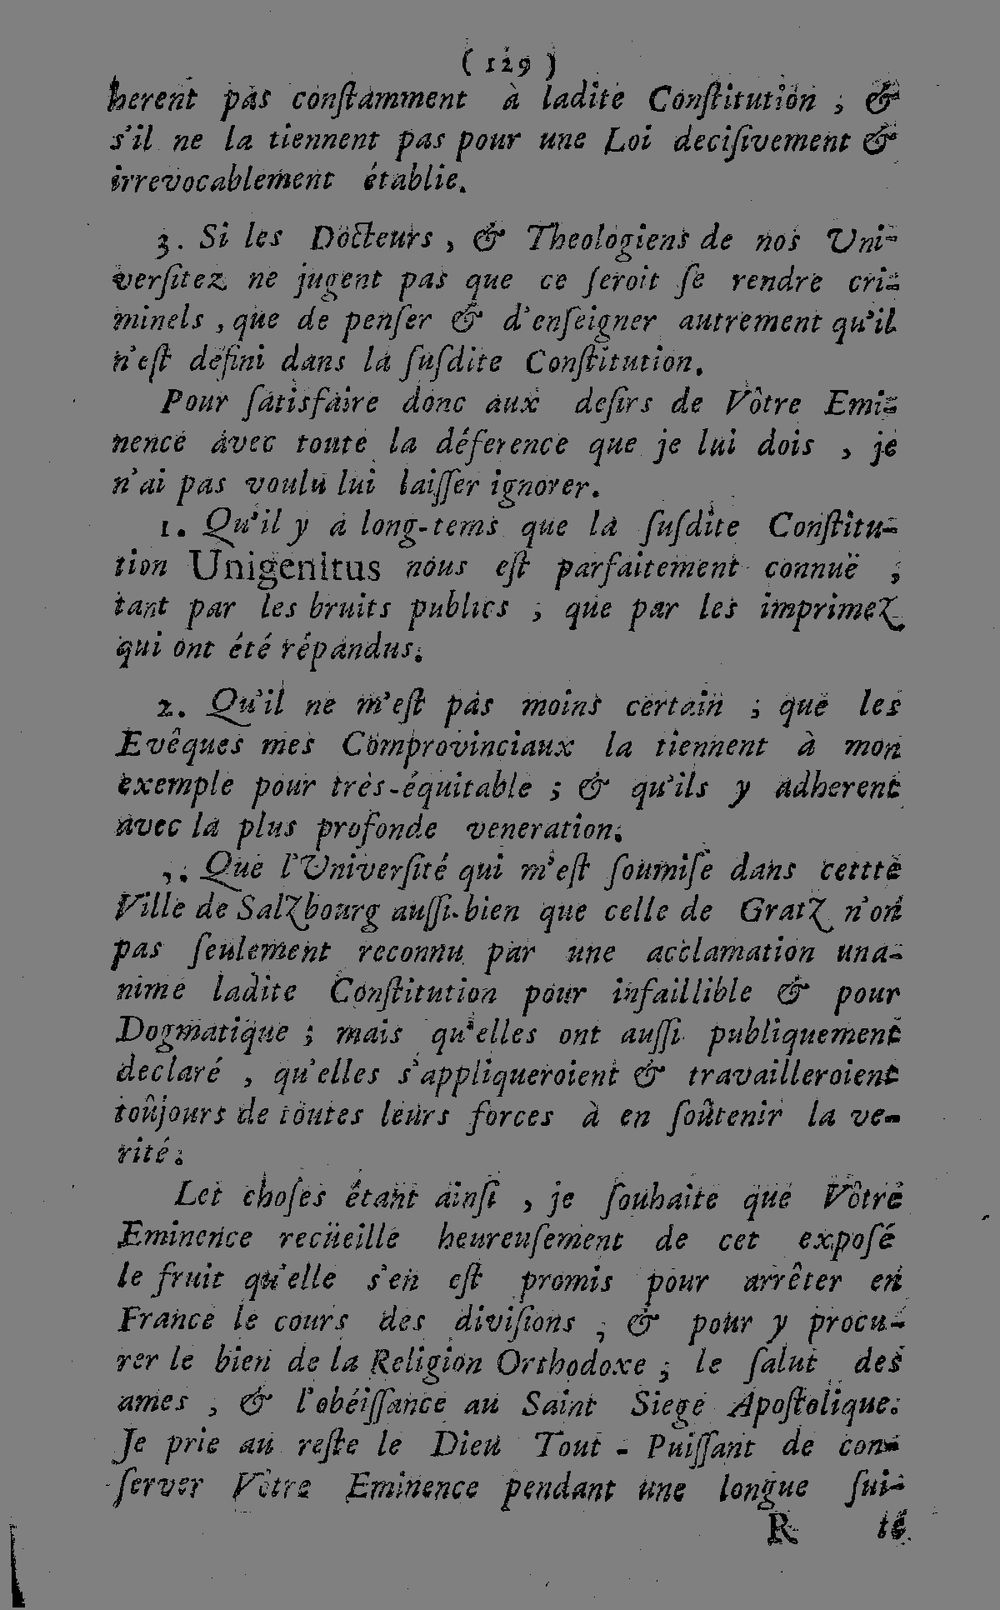 ( 129 )
herent pas conſtamment à ladite Conſtitution ; &
s'il ne la tiennent pas pour une Loi deciſivement &
irrevocablement établie.
3. Si les Docteurs , & Theologiens de nos Uni-
verſitez ne jugent pas que ce ſeroit ſe rendre cri-
minels , que de penſer & d'enſeigner autrement qu'il
n'eſt défini dans la ſuſdite Conſtitution.
Pour ſatisfaire donc aux deſirs de Vôtre Emi-
nence avec toute la déference que je lui dois , je
n'ai pas voulu lui laiſſer ignorer.
1. Qu'il y a long-tems que la ſuſdite Conſtitu-
tion Unigenitus nous eſt parfaitement connuë ,
tant par les bruits publics , que par les imprimez
qui ont été répandus.
2. Qu'il ne m'eſt pas moins certain ; que les
Evêques mes Comprovinciaux la tiennent à mon
exemple pour très-équitable ; & qu'ils y adherent
avec la plus profonde veneration.
3. Que l'Univerſité qui m'eſt ſoumiſe dans cettte
Ville de Salzbourg auſſi-bien que celle de Gratz n'on
pas ſeulement reconnu par une acclamation una-
nime ladite Conſtitution pour infaillible & pour
Dogmatique ; mais qu'elles ont auſſi publiquement
declaré , qu'elles s'appliqueroient & travailleroient
toûjours de toutes leurs forces à en ſoûtenir la ve-
rité.
Let choſes étant ainſi , je ſouhaite que Vôtre
Eminence recüeille heureuſement de cet expoſé
le fruit qu'elle s'en eſt promis pour arrêter en
France le cours des diviſions , & pour y procu-
rer le bien de la Religion Orthodoxe ; le ſalut des
ames , & l'obéiſſance au Saint Siege Apoſtolique.
Je prie au reſte le Dieu Tout - Puiſſant de con-
ſerver Vôtre Eminence pendant une longue ſui-
R té